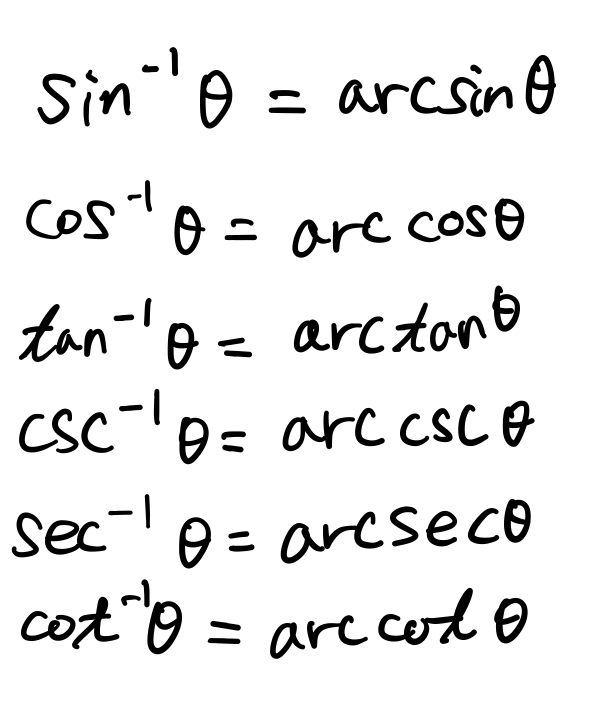 sin⁻¹ θ = arcsin θ
cos⁻¹ θ = arc cosθ
tan⁻¹ θ = arctanθ
csc⁻¹ θ = arc csc θ
sec⁻¹ θ = arcsecθ
cot⁻¹θ = arc cot θ